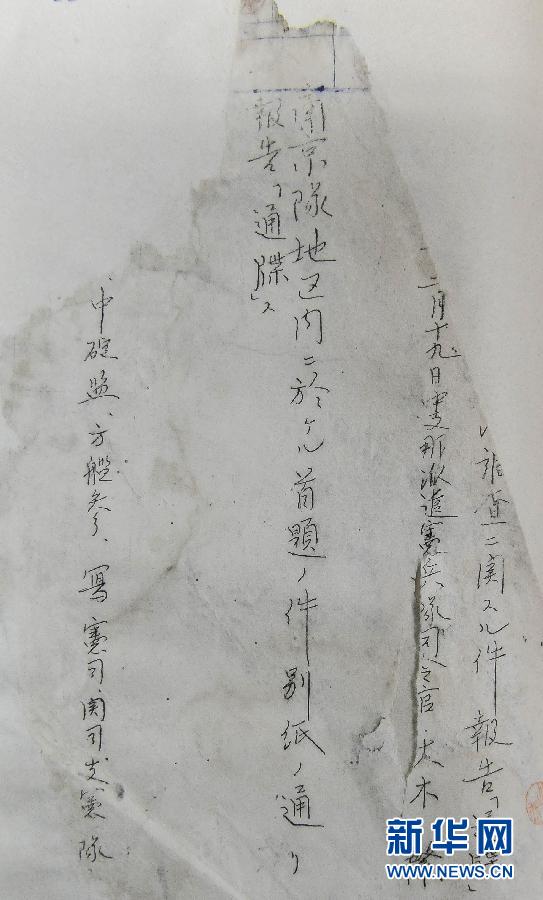 調査ニ関スル件報告「通牒」
二月十九日中支那派遣憲兵隊司令官 大木繁
南京隊地区内ニ於ケル首題ノ件別紙ノ通リ
報告「通牒」ス
中碇監、方艦参、写憲司関司支憲隊
新华网
WWW.NEWS.CN